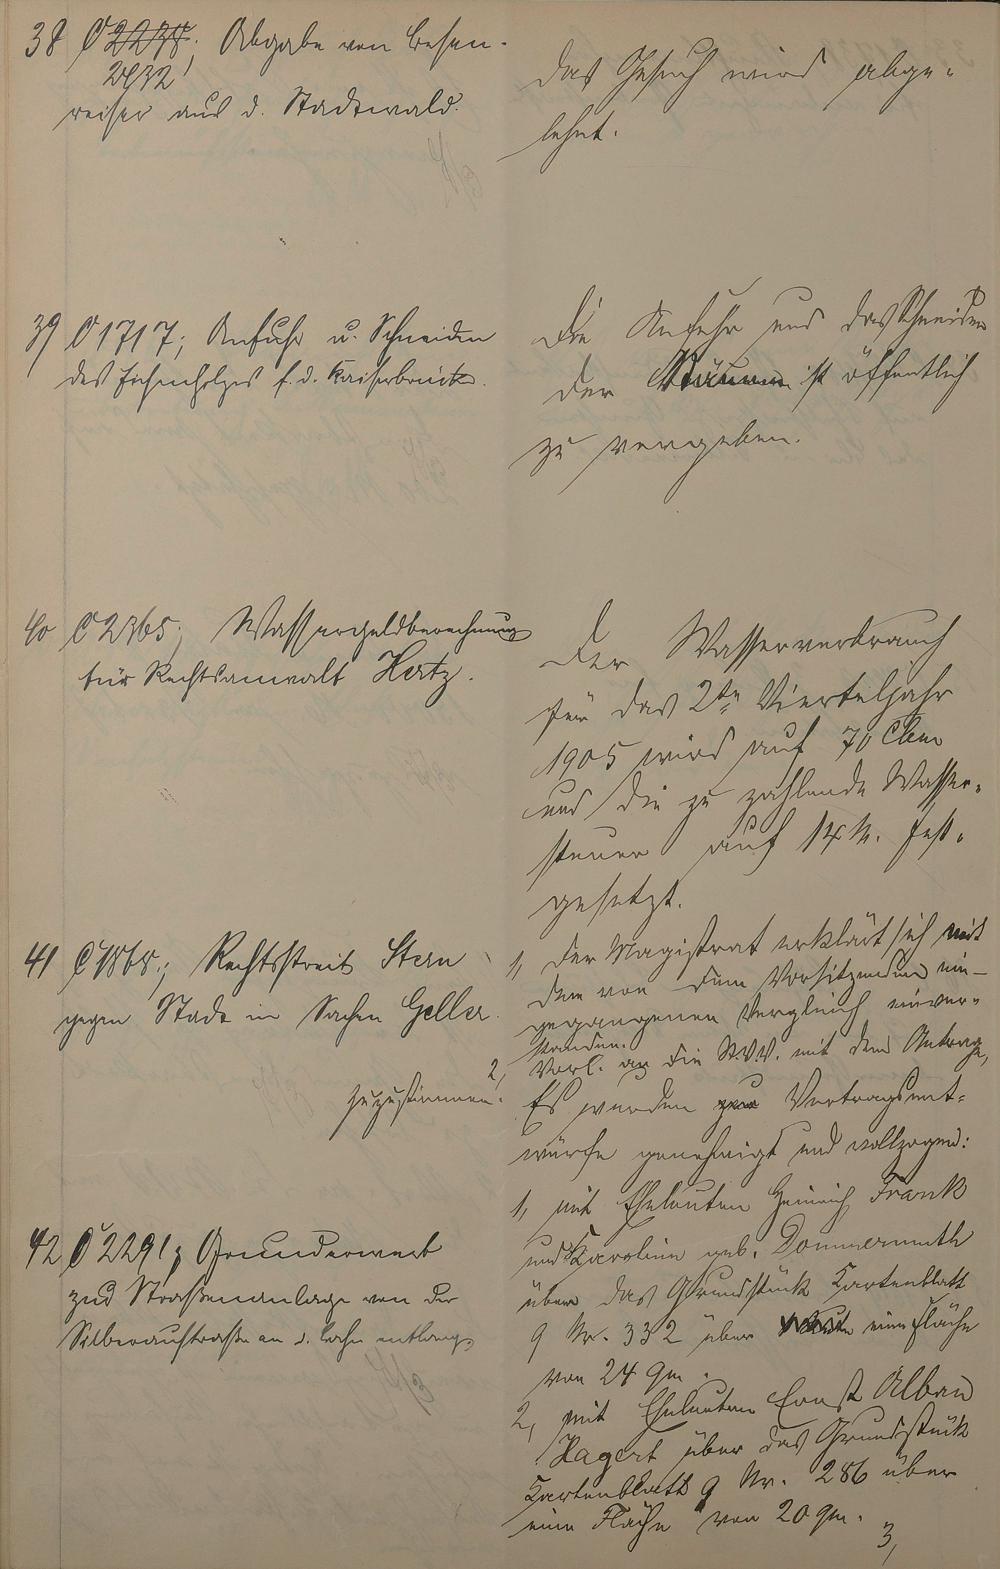 38 C 2278; Abgabe von Besen-
2432
reiser aus d. Stadtwald.
Das Gesuch wird abge-
lehnt.
39 C 1717; Anfuhr u. Schneiden
des Eichenholzes f. d. Kaiserbrücke.
Die Anfuhr und das Schneiden
der Bäume ist öffentlich
zu vergeben.
40 C 2365; Wassergeldberechnung
für Rechtsanwalt Hertz.
Der Wasserverbrauch
für das 2te Vierteljahr
1905 wird auf 70 Cbm
und die zu zahlende Wasser-
steuer auf 14 M. fest-
gesetzt.
41 C 1868; Rechtsstreit Stern
gegen Stadt in Sachen Geller.
1, Der Magistrat erklärt sich mit
dem von dem Vorsitzenden ein-
gegangenen Vergleich einver-
standen.
2, Vorl. an die St.V.V. mit dem Antrage,
zuzustimmen.
42 C 2291; Grunderwerb
zur Straßenanlage von der
Silberaustraße an d. Lahn entlang.
Es wurden Vertragsent-
würfe genehmigt und vollzogen:
1, mit Eheleuten Heinrich Frank
und Karoline geb. Dommermuth
über das Grundstück Kartenblatt
9 Nr. 332 über eine Fläche
von 24 qm.
2, mit Eheleuten Ernst Alban
Hagert über das Grundstück
Kartenblatt 9 Nr. 286 über
eine Fläche von 20 qm.
3,